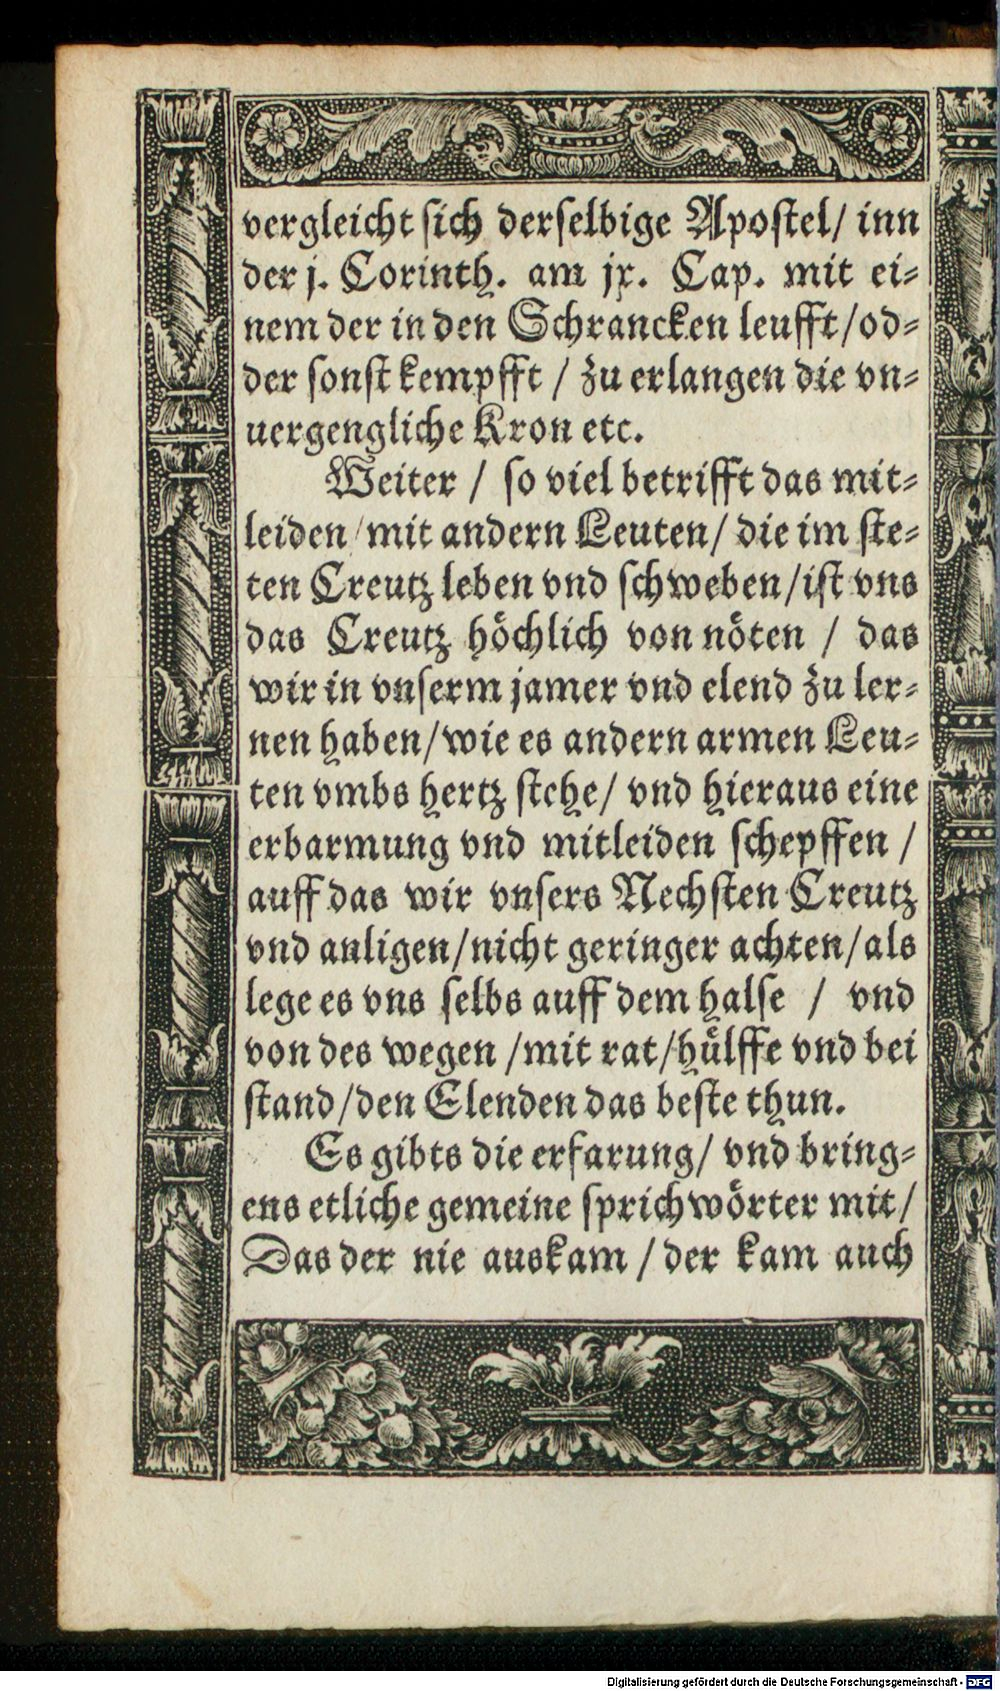 vergleicht sich derselbige Apostel/ inn
der j. Corinth. am jx. Cap. mit ei⸗
nem der in den Schrancken leufft/od⸗
der sonst kempfft / zu erlangen die vn⸗
uergengliche Kron etc.
Weiter / so viel betrifft das mit⸗
leiden/mit andern Leuten/ die im ste⸗
ten Creutz leben vnd schweben/ist vns
das Creutz höchlich von nöten / das
wir in vnserm jamer vnd elend zu ler⸗
nen haben/wie es andern armen Leu⸗
ten vmbs hertz stehe/ vnd hieraus eine
erbarmung vnd mitleiden schepffen /
auff das wir vnsers Nechsten Creutz
vnd anligen/nicht geringer achten/als
lege es vns selbs auff dem halse / vnd
von des wegen /mit rat/hülffe vnd bei
stand/den Elenden das beste thun.
Es gibts die erfarung/ vnd bring⸗
ens etliche gemeine sprichwörter mit/
Das der nie auskam / der kam auch
Digitalisierung gefördert durch die Deutsche Forschungsgemeinschaft - DFG